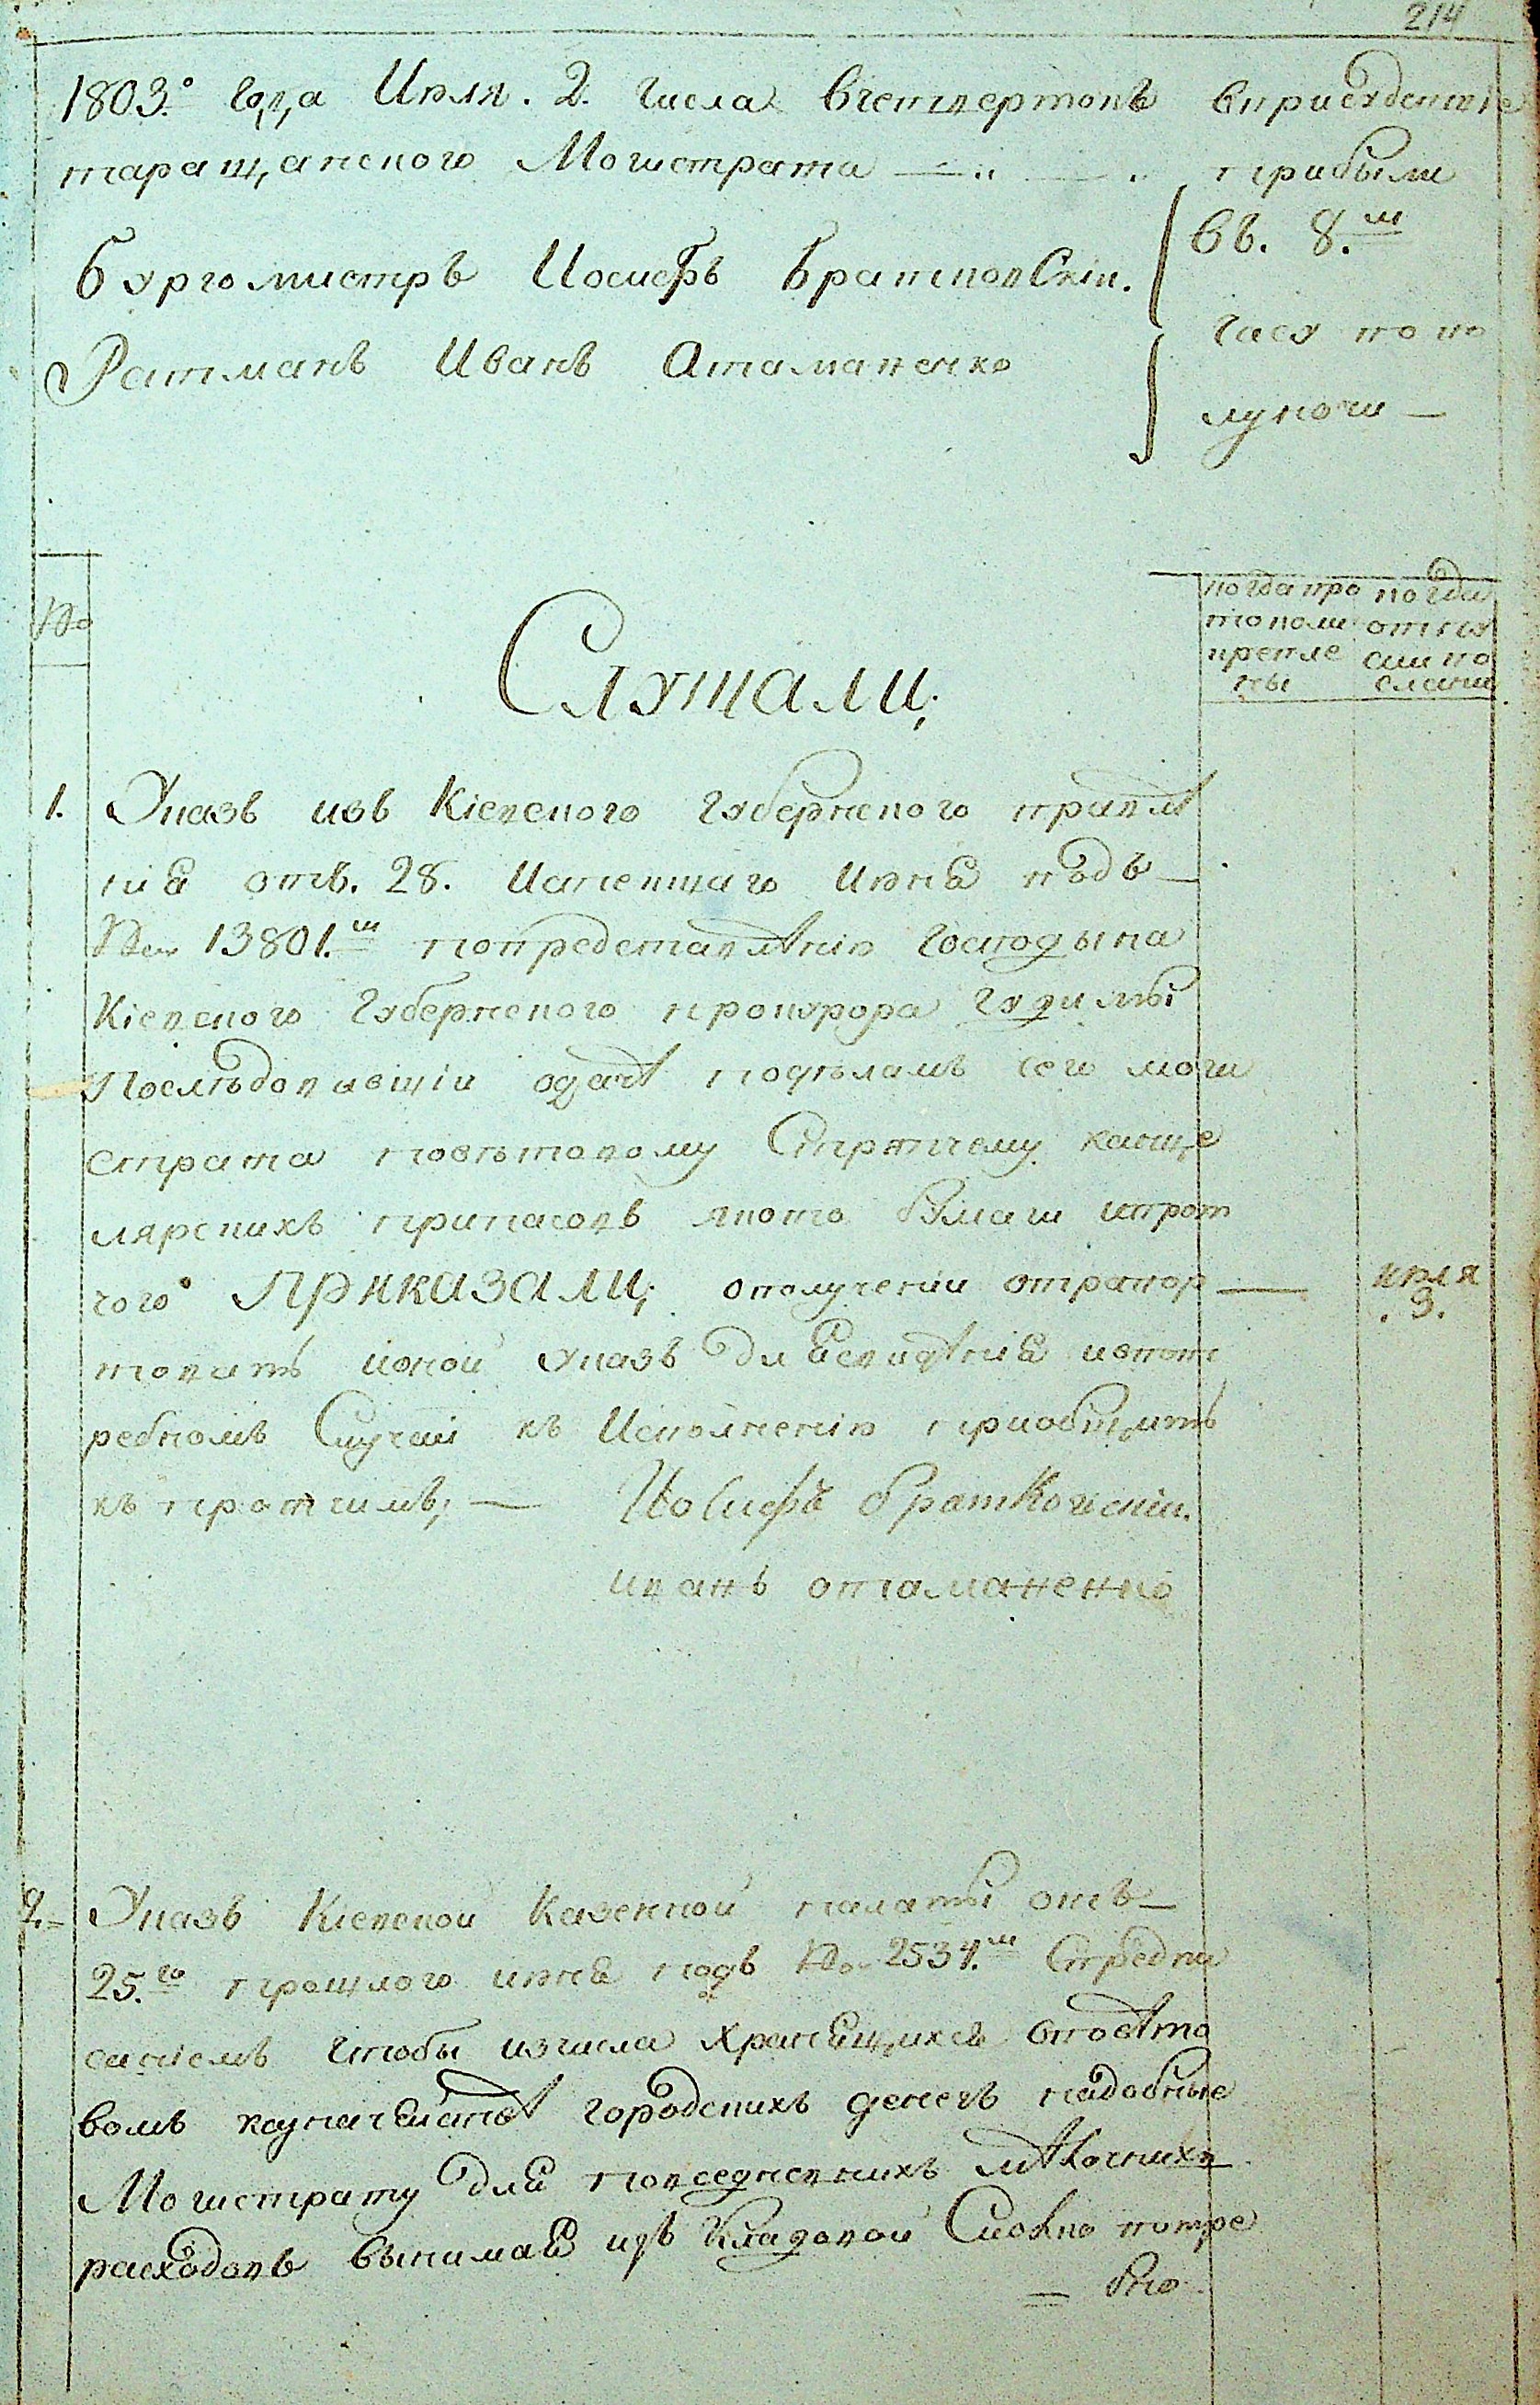 214
1803.º года Июля. 2. числа вчетвертокъ вприсудствіе
таращанского Могистрата прибыли
Бургомистръ Иосифъ Братковскій.
Ратманъ Иванъ Атаманенко
въ. 8.м
часу попо
луночи —
№
Слушали;
когда про
токоли
крепле
ны
когда
отпу
ски по
сланы
1. Указъ изъ Кіевского Губернского правлѣ
нія отъ. 28. Истекшаго июня подъ —
№м 13801.м попредставлѣнію Господына
Кіевского Губернского прокурора Гудимы
Послѣдовавшій одачѣ подѣламъ сего моги
страта повѣтовому Стряпчему канце
лярскихъ припасовъ якото бумаги ипрот
чого ПРИКАЗАЛИ; ополученіи отрапор —
товать йоной указъ для свидѣнія ивпот
ребномъ Случаи къ Исполненію приобщить
къ протчимъ; —
июля
. 3.
Иосифъ братковскій.
иванъ отаманенко
2. Указъ Кіевской Казенной палаты отъ —
25.го прошлого июня подъ № 2534.м Спредпи
саніемъ чтобы изчисла хранящихся вповѣто
вомъ казначействѣ городскихъ денегъ надобные
Могистрату для повседневнихъ мѣлочнихъ
расходовъ вынимая изъ Кладовой Сколко потре
= бно